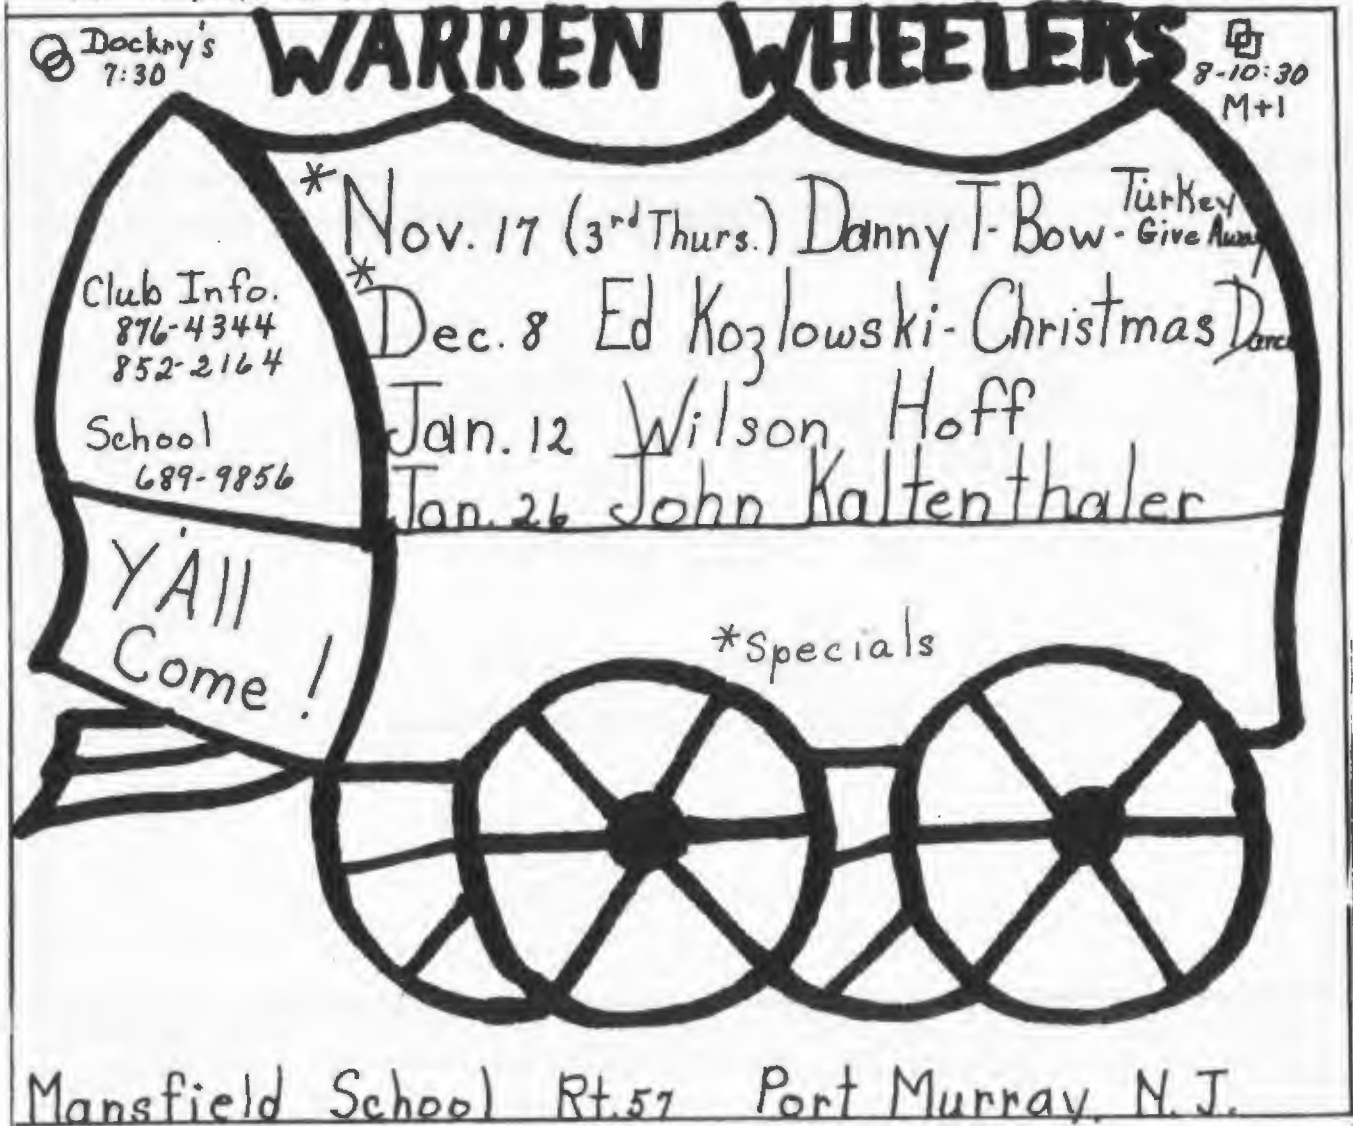 Dockry's
7:30
WARREN WHEELERS
8-10:30
M+1
*Nov. 17 (3rd Thurs.) Danny T-Bow - Turkey Give Away
*Dec. 8 Ed Kozlowski - Christmas Dance
Jan. 12 Wilson Hoff
Jan. 26 John Kaltenthaler
Club Info.
876-4344
852-2164
School
689-9856
Y'All
Come!
*Specials
Mansfield School Rt. 57 Port Murray, N.J.